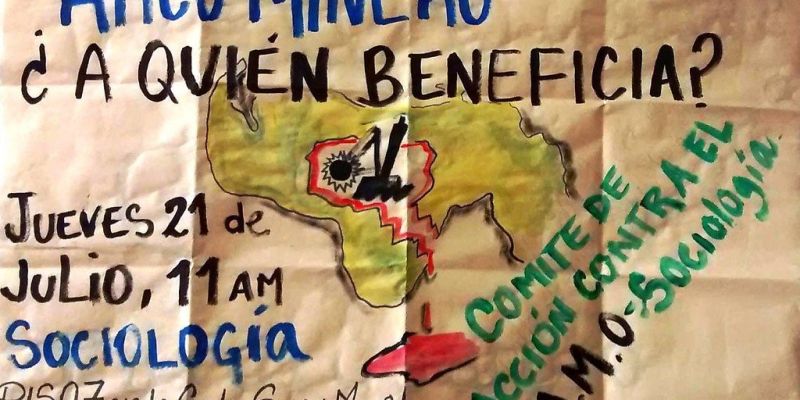 ARCO MINERO
¿A QUIÉN BENEFICIA?
JUEVES 21 de
JULIO, 11 AM
SOCIOLOGÍA
COMITE DE
ACCIÓN CONTRA EL
A.M.O-Sociología.